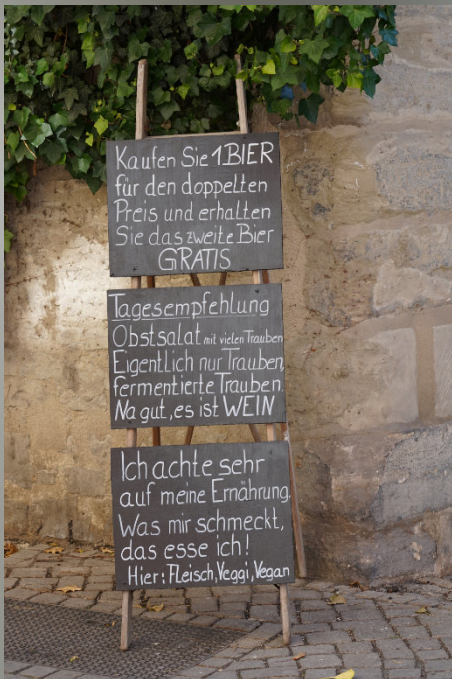 Kaufen Sie 1 BIER
für den doppelten
Preis und erhalten
Sie das zweite Bier
GRATIS
Tagesempfehlung
Obstsalat mit vielen Trauben
Eigentlich nur Trauben,
fermentierte Trauben.
Na gut, es ist WEIN
Ich achte sehr
auf meine Ernährung.
Was mir schmeckt,
das esse ich!
Hier: Fleisch, Veggi, Vegan